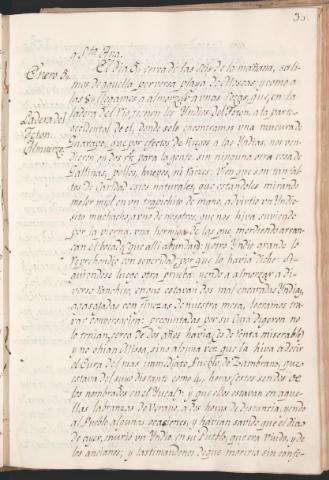 30.
a Sta. Ana.
Enero 5. El dia 5. cerca de las seis de la mañana, sali-
mos de aquella perversa playa de Moscas, y como a
las 8 llegamos a almorzar a unas Rozas que en la
Ladera del ladera del Rio tienen los Yndios del Teton a la parte
Teton. occidental de el, donde solo encontramos una
Almuerzo. que por efectos de Riegos a las Yndias, nos ven-
dieron en dos rs. para la gente, sin ninguna otra cosa de
Gallinas, pollos, huevos, ni raizes. Vien que son tan
de Caridad estos naturales, que estandoles mirando
moler miel en un trapichito de mano, advirtio un Yndie-
sito muchacho, a uno de nosotros, que nos hiva suviendo
por la pierna, una hormiga de las que, mordiendo arran-
can el bocado, que alli abundan; y otro Yndio grande lo
reprehendio con severidad, por que lo havia dicho. Si-
guiendose luego otra prueba yendo a almorzar a di-
verso Ranchito, en que estavan dos mal encaradas Yndias,
agasajadas con finezas de nuestra mesa, les
var conversacion: preguntadas por su Cura dijeron no
lo tenian, cerca de dos años havia (es de renta miserable)
y no ohian Missa, sino alguna vez que la hiva a decir
el Cura del mas immediato Pueblo de Zambrano, que
estava del suyo distante como horas (estos sendos
los nombrados en el ) y que ellas estavan en aque-
llas labranzas de Verano, a dos horas de distancia, yendo
al Pueblo algunas ocasiones, y havian savido que el dia
de ayer, murio un Yndio en su Pueblo, que era viudo, y de
los ancianos; y lastimandonos de que moriria sin confe-